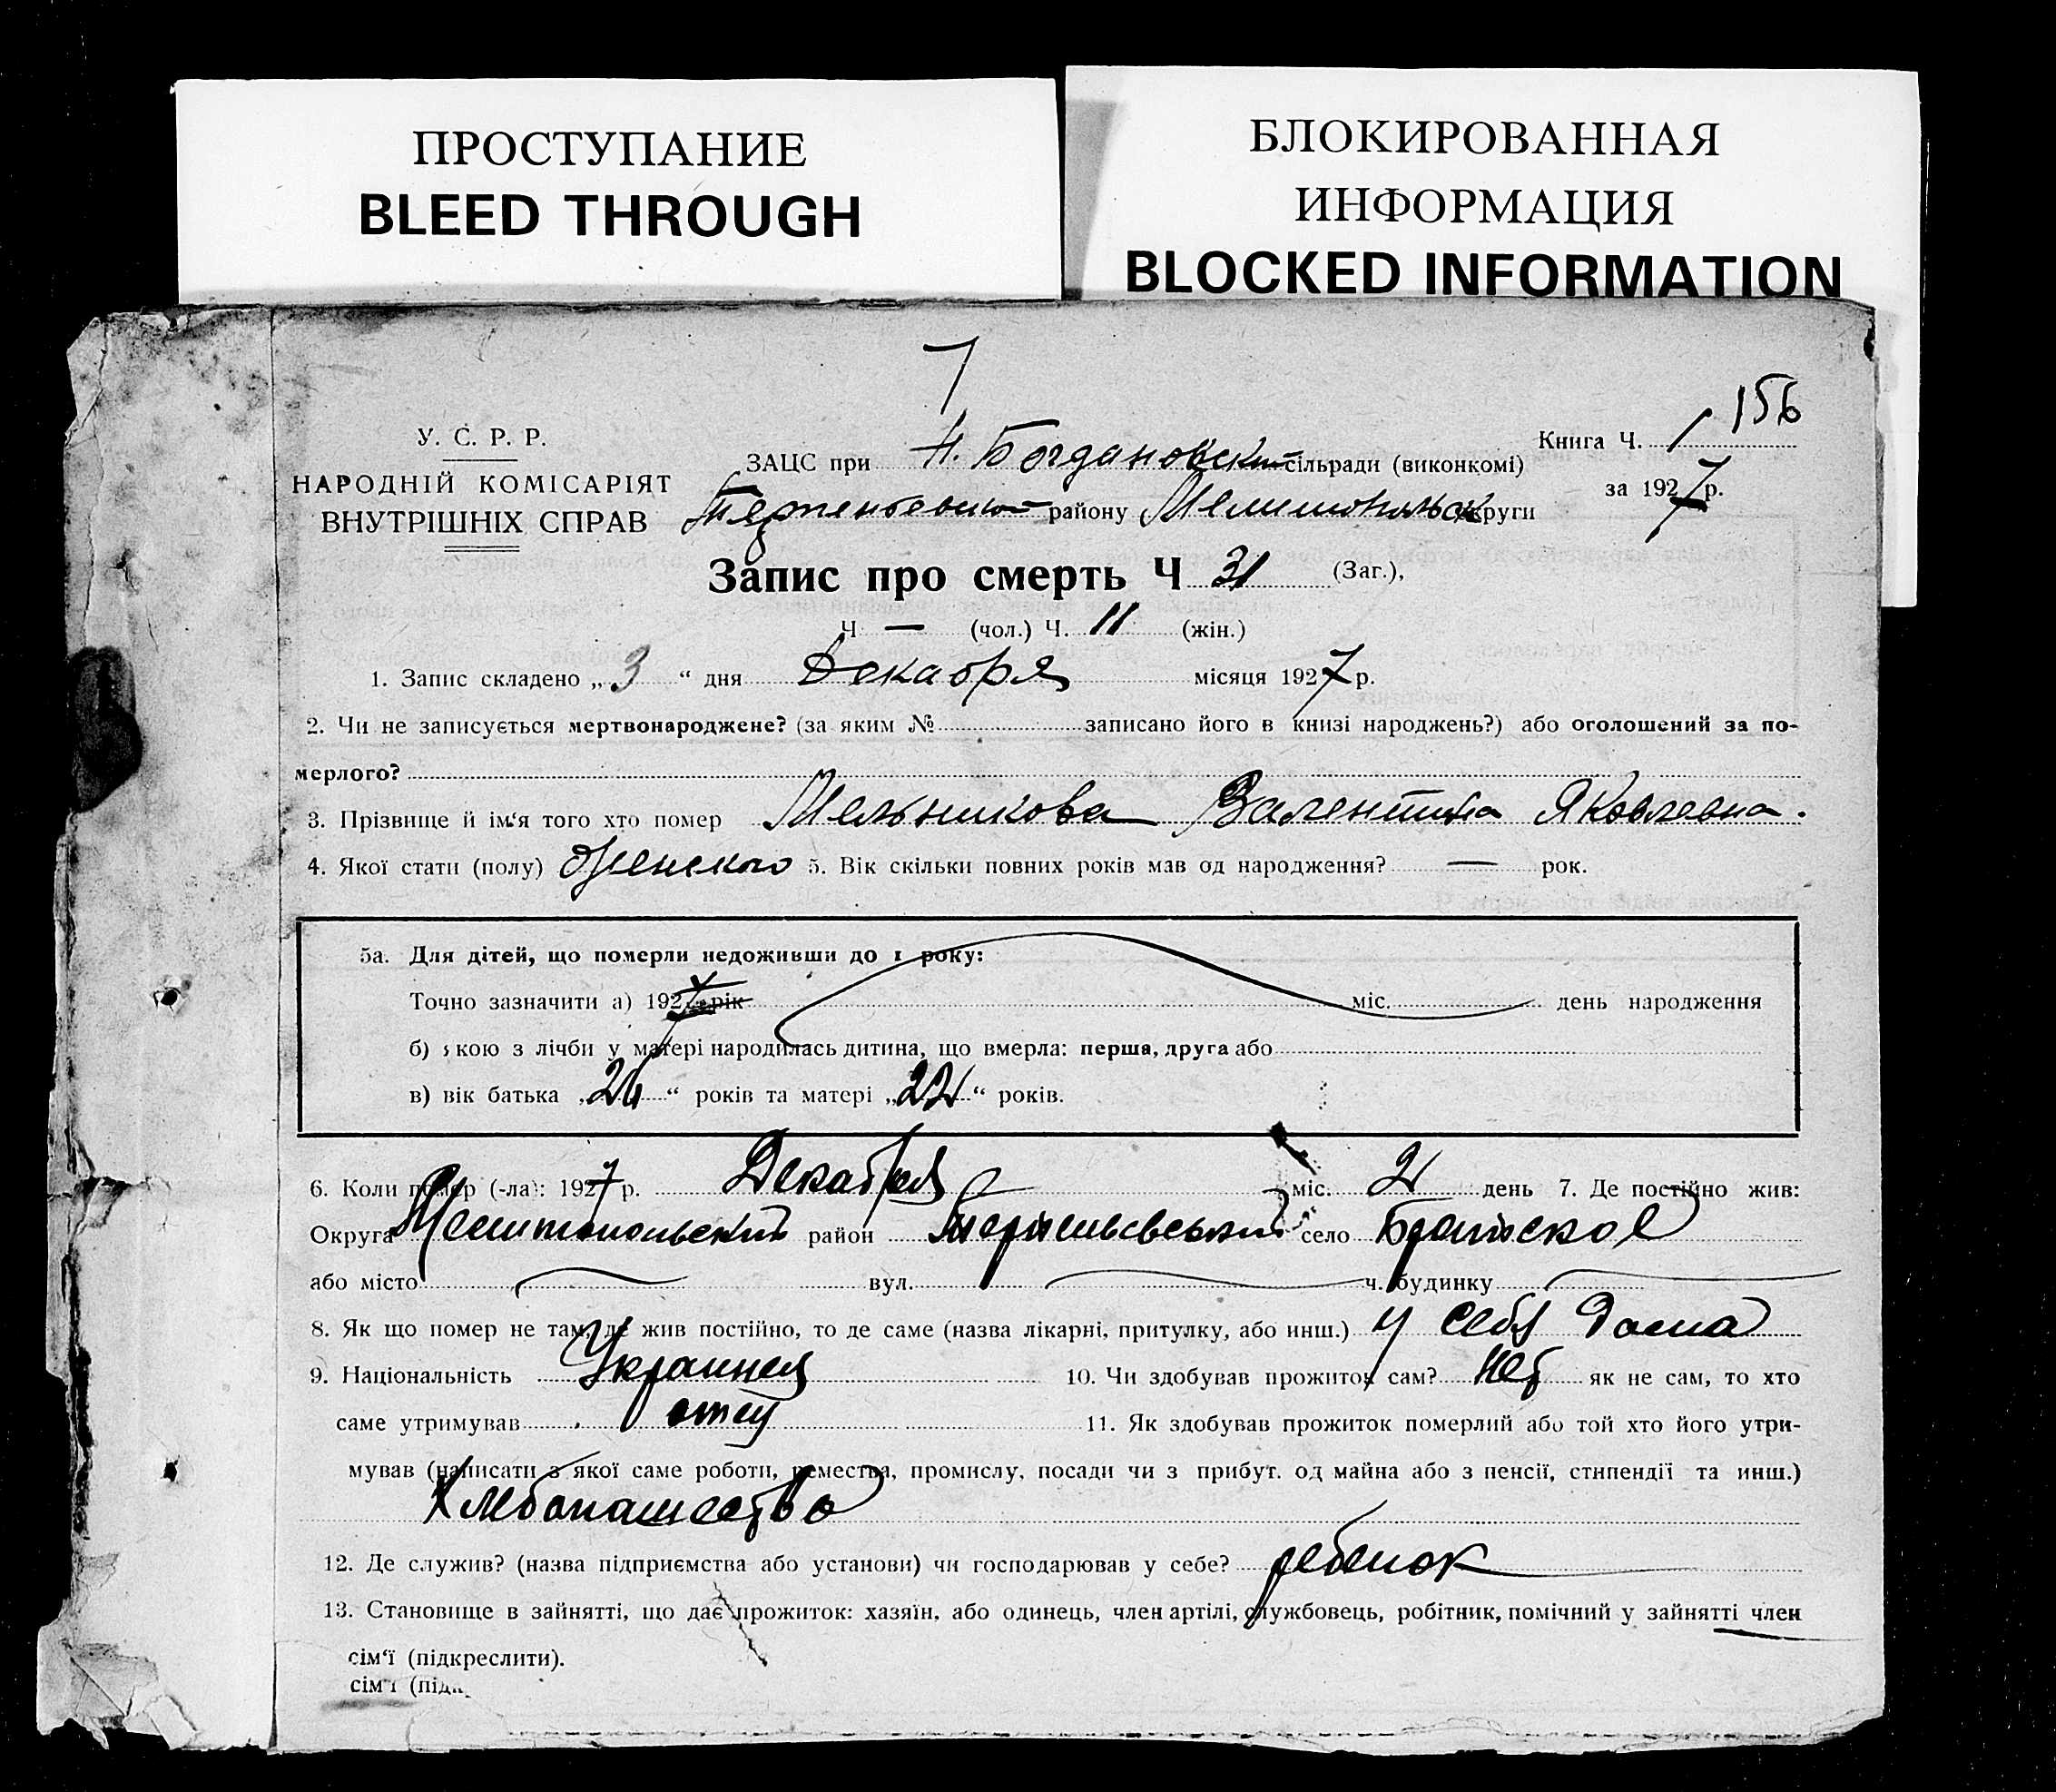 ПРОСТУПАНИЕ
BLEED THROUGH
БЛОКИРОВАННАЯ
ИНФОРМАЦИЯ
BLOCKED INFORMATION
7
156
У. С. Р. Р.
НАРОДНІЙ КОМІСАРІЯТ
ВНУТРІШНІХ СПРАВ
ЗАЦС при Н. Богдановский сільради (виконкомі)
району Мелитопольск округи
Книга Ч. 1
за 1927 р.
7
Запис про смерть Ч 31 (Заг.),
Ч — (чол.) Ч. 11 (жін.)
1. Запис складено „3“ дня Декабря місяця 1927 р.
2. Чи не записується мертвонароджене? (за яким № записано його в книзі народжень?) або оголошений за по-
мерлого?
3. Прізвище й ім‘я того хто помер Мельникова Валентина Яковлевна.
4. Якої стати (полу) Женского 5. Вік скільки повних років мав од народження? — рок.
5а. Для дітей, що померли недоживши до 1 року:
Точно зазначити а) 1927 рік міс. день народження
б) якою з лічби у матері народилась дитина, що вмерла: перша, друга або
в) вік батька „26“ років та матері „22“ років.
6. Коли помер (-ла): 1927 р. Декабря міс. 2 день 7. Де постійно жив:
Округа Мелитопольский район село Братское
або місто вул. ч. будинку
8. Як що помер не там, де жив постійно, то де саме (назва лікарні, притулку, або инш.) у себя дома
9. Національність 10. Чи здобував прожиток сам? нет як не сам, то хто
саме утримував отец 11. Як здобував прожиток померлий або той хто його утри-
мував (написати з якої саме роботи, ремества, промислу, посади чи з прибут. од майна або з пенсії, стипендії та инш.)
Хлебопашество
12. Де служив? (назва підприємства або установи) чи господарював у себе? ребенок
13. Становище в зайнятті, що дає прожиток: хазяїн, або одинець, член артілі, службовець, робітник, помічний у зайнятті член
сім‘ї (підкреслити).
сім‘ї (підк